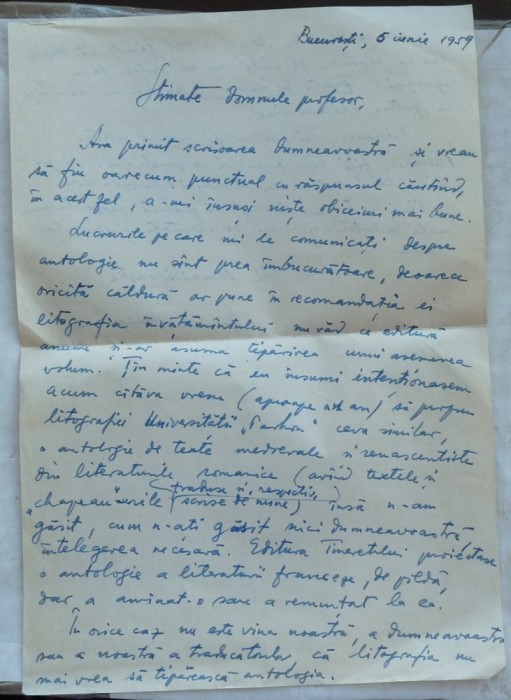 București, 6 iunie 1959
Stimate domnule profesor,
Am primit scrisoarea dumneavoastră și vreau
să fiu oarecum punctual cu răspunsul căutînd,
în acest fel, a-mi însuși niște obiceiuri mai bune.
Lucrurile pe care mi le comunicați despre
antologie nu sînt prea îmbucurătoare, deoarece
oricîtă căldură ar pune în recomandația ei
litografia învățămîntului nu văd ce editură
anume și-ar asuma tipărirea unui asemenea
volum. Țin minte că eu însumi intenționasem
acum cîtăva vreme (aproape un an) să propun
litografiei Universității „Parhon" ceva similar,
o antologie de texte medievale și renascentiste
din literaturile romanice (avînd textele și
traduse și, respectiv,
„chapeau"-urile scrise de mine) însă n-am
găsit, cum n-ați găsit nici dumneavoastră
înțelegerea necesară. Editura Tineretului proiectase
o antologie a literaturii franceze, de pildă,
dar a amînat-o sau a renunțat la ea.
În orice caz nu este vina noastră, a dumneavoastră
sau a noastră a traducătorilor că litografia nu
mai vrea să tipărească antologia.